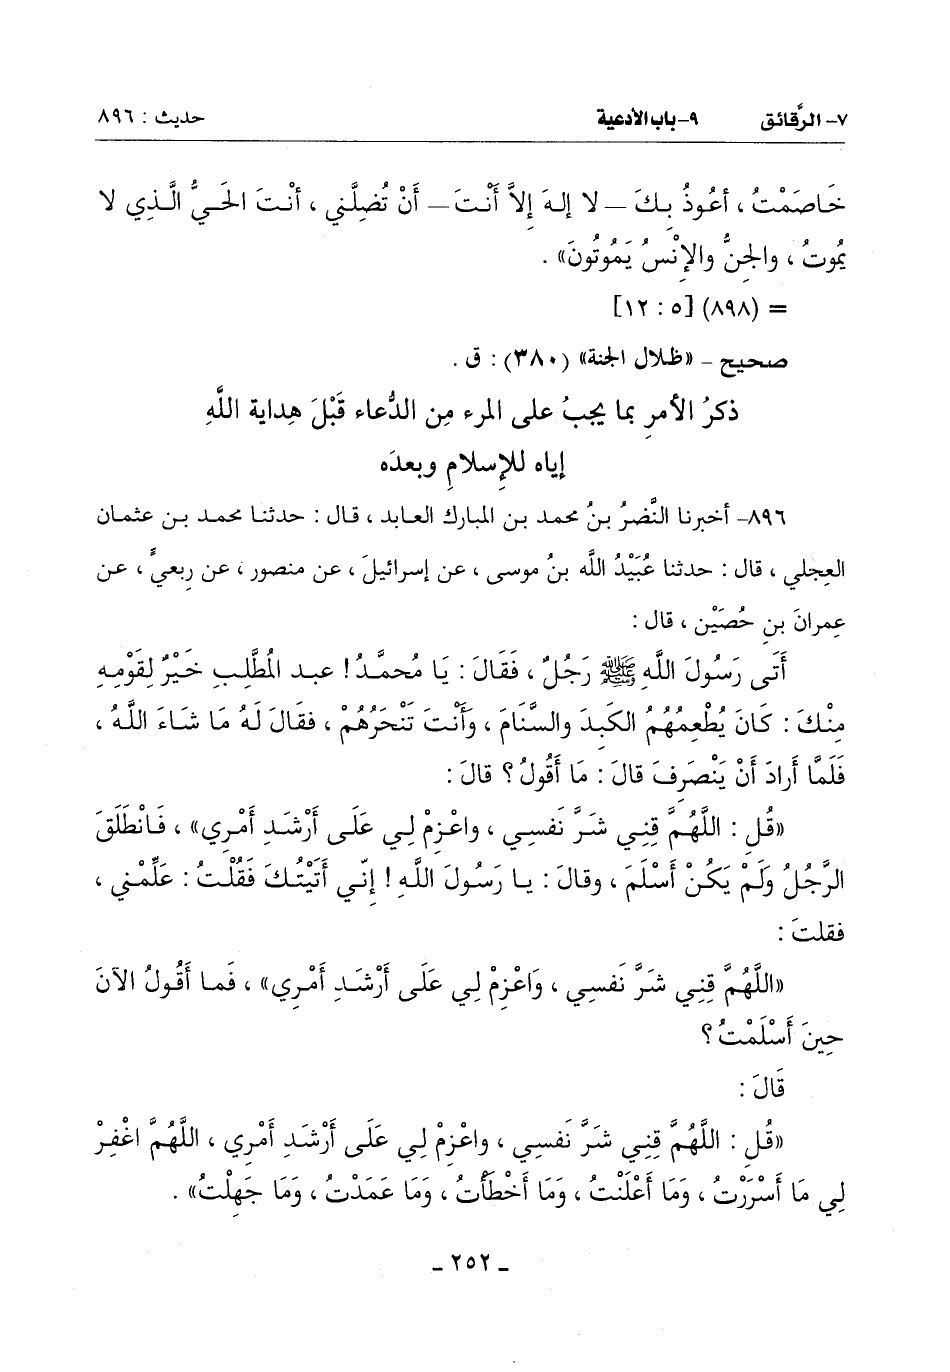 ٧- الرَّقائق ٩- باب الأدعية حديث : ٨٩٦
خَاصَمْتُ ، أعُوذُ بِكَ – لا إلهَ إلاَّ أَنْتَ – أَنْ تُضِلَّني ، أنْتَ الحَيُّ الَّذِي لا
يَمُوتُ ، والجِنُّ والإنْسُ يَمُوتُونَ» .
= (٨٩٨) [٥ : ١٢]
صحيح - «ظلال الجنة» (٣٨٠) : ق .
ذكرُ الأمرِ بما يجبُ على المرء مِن الدُّعاء قَبْلَ هِداية اللَّهِ
إياه للإسلامِ وبعدَه
٨٩٦- أخبرنا النَّضرُ بنُ محمد بن المبارك العابد ، قال : حدثنا محمد بن عثمان
العِجلي ، قال : حدثنا عُبَيْدُ اللَّه بنُ موسى ، عن إسرائيلَ ، عن منصور ، عن رِبعيٍّ ، عن
عِمرانَ بنِ حُصَيْن ، قال :
أَتَى رَسُولَ اللَّهِ ﷺ رَجُلٌ ، فَقَالَ : يَا مُحمَّدُ ! عبد المُطَّلِبِ خَيْرٌ لِقَوْمِهِ
مِنْكَ : كَانَ يُطْعِمُهُمُ الكَبِدَ والسَّنَامَ ، وَأَنْتَ تَنْحَرُهُمْ ، فقَالَ لَهُ مَا شَاءَ اللَّهُ ،
فَلَمَّا أرادَ أَنْ يَنْصَرِفَ قالَ : مَا أَقُولُ ؟ قالَ :
«قُل : اللَّهُمَّ قِنِي شَرَّ نَفسِي ، واعْزِمْ لِي عَلَى أَرْشَدِ أَمْرِي» ، فَانْطَلَقَ
الرَّجُلُ وَلَمْ يَكُنْ أَسْلَمَ ، وقالَ : يا رَسُولَ اللَّهِ ! إنّي أَتَيْتُكَ فَقُلْتُ : عَلِّمْني ،
فقلتَ :
«اللَّهُمَّ قِنِي شَرَّ نَفسِي ، وَاعْزِمْ لِي عَلَى أَرْشَدِ أَمْرِي» ، فَما أَقُولُ الآنَ
حِينَ أَسْلَمْتُ ؟
قَالَ :
«قُل : اللَّهُمَّ قِنِي شَرَّ نَفسِي ، واعْزِمْ لِي عَلَى أَرْشَدِ أَمْرِي ، اللَّهُمَّ اغْفِرْ
لِي مَا أَسْرَرْتُ ، وَمَا أَعْلَنْتُ ، وَمَا أَخْطَأْتُ ، وَمَا عَمَدْتُ ، وَمَا جَهِلْتُ» .
- ٢٥٢ -